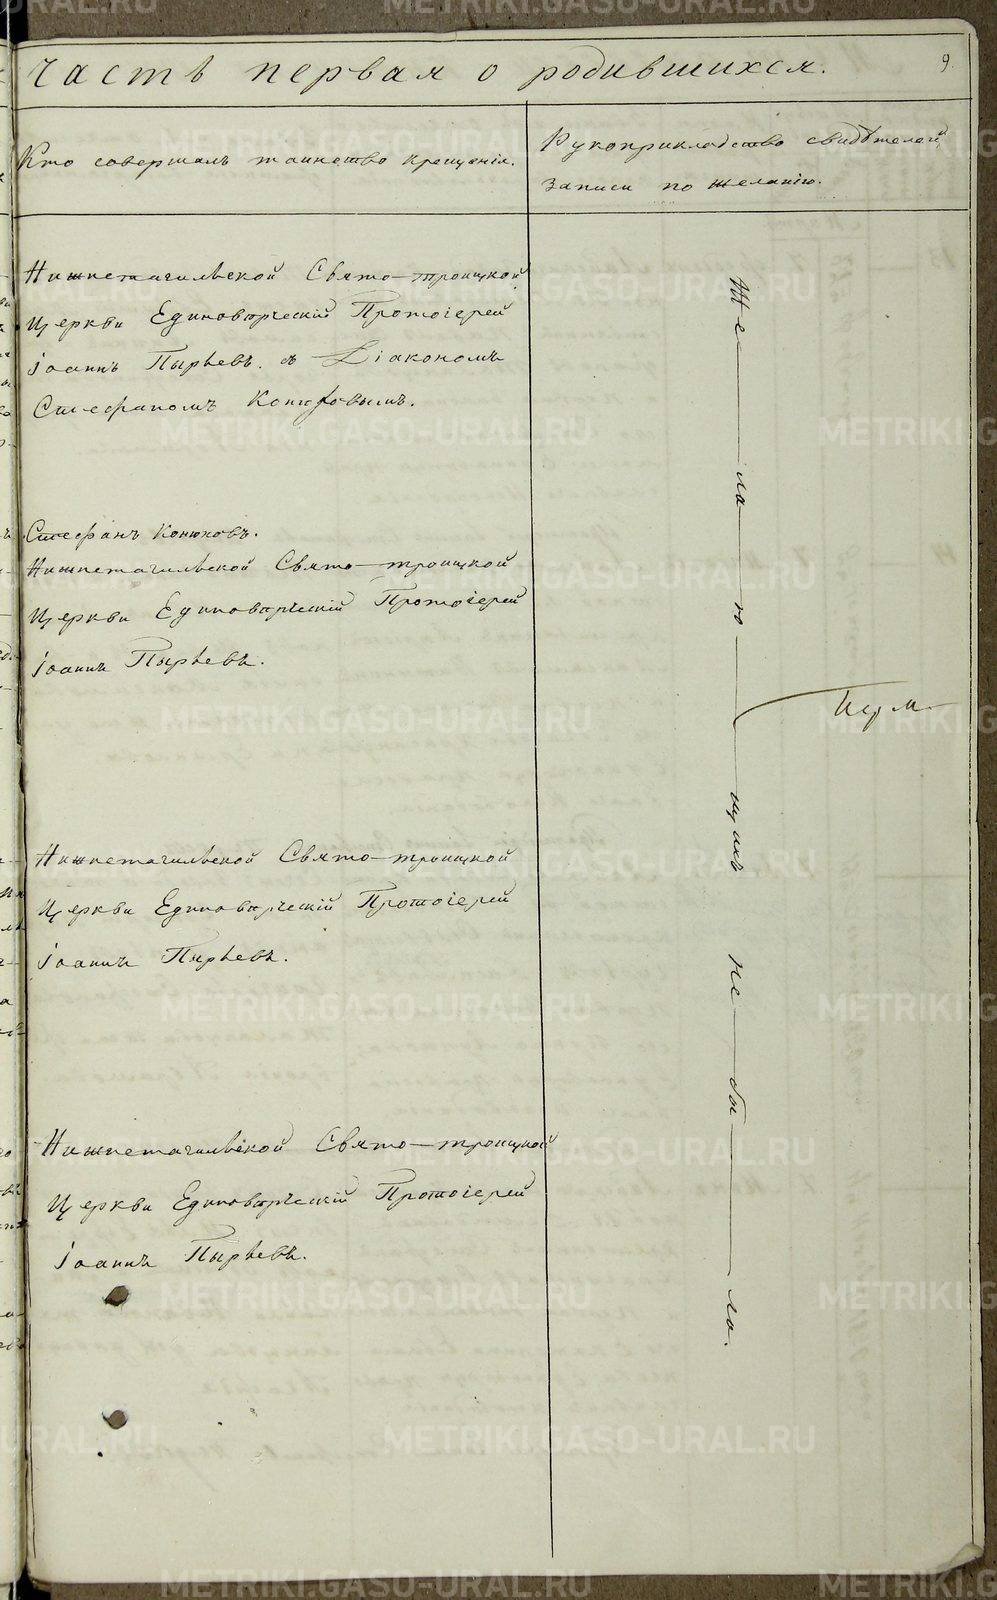 Часть первая о родившихся.
9.
Кто совершалъ таинство крещенія.
Рукоприкладство свидѣтелей
записи по желанію.
Нижнетагильской Свято-троицкой
Церкви Единовѣрческій Протоіерей
Іоаннъ Пырьевъ. съ Діакономъ
Стефаномъ Конюховымъ.
Стефанъ Конюховъ.
Нижнетагильской Свято-троицкой
Церкви Единовѣрческій Протоіерей
Іоаннъ Пырьевъ.
Нижнетагильской Свято-троицкой
Церкви Единовѣрческій Протоіерей
Іоаннъ Пырьевъ.
Нижнетагильской Свято-троицкой
Церкви Единовѣрческій Протоіерей
Іоаннъ Пырьевъ.
Же—ла—ю—щихъ не—бы—ло.
METRIKI.GASO-URAL.RU